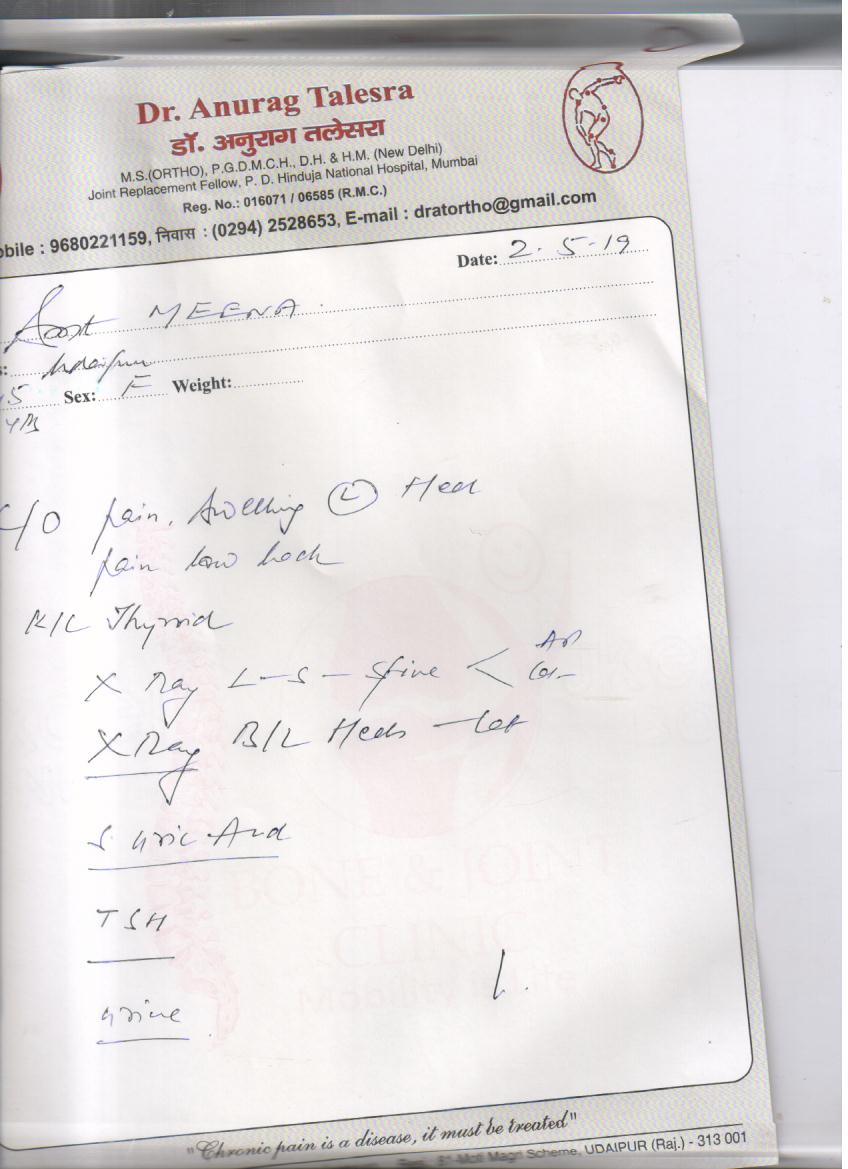 Dr. Anurag Talesra
डॉ. अनुराग तलेसरा
M.S.(ORTHO), P.G.D.M.C.H., D.H. & H.M. (New Delhi)
Joint Replacement Fellow, P. D. Hinduja National Hospital, Mumbai
Reg. No.: 016071 / 06585 (R.M.C.)
obile : 9680221159, निवास : (0294) 2528653, E-mail : dratortho@gmail.com
Date: 2-5-19
MEENA
Udaipur
Sex: F Weight:
C/O pain, swelling (L) Heel
pain low back
K/C Thyroid
X Ray L-S-Spine < AP
X Ray B/L Heels - Lat
S. Uric Acid
TSH
Urine
BONE & JOINT
CLINIC
"Chronic pain is a disease, it must be treated"
Moti Magri Scheme, UDAIPUR (Raj.) - 313 001